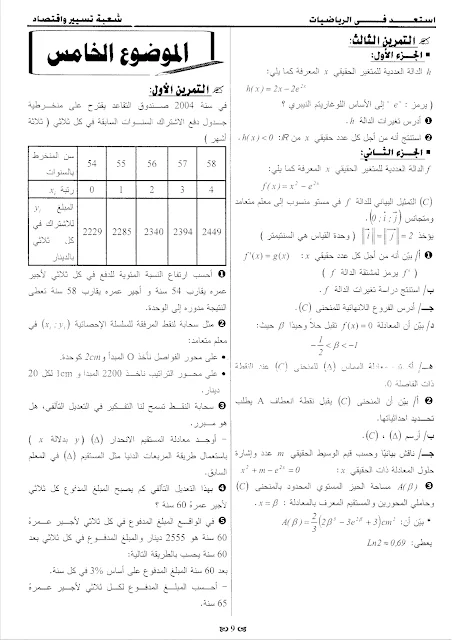 استعد في الرياضيات
شعبة تسيير واقتصاد
التمرين الثالث:
الجزء الأول:
h الدالة العددية للمتغير الحقيقي x المعرفة كما يلي:
h(x) = 2x - 2e^{2x}
( يرمز : " e " إلى الأساس اللوغاريتم النيبري )
❶ أدرس تغيرات الدالة h.
❷ استنتج أنه من أجل كل عدد حقيقي x من IR: h(x) < 0.
الجزء الثاني:
f الدالة العددية للمتغير الحقيقي x المعرفة كما يلي:
f(x) = x² - e^{2x}
(C) التمثيل البياني للدالة f في مستو منسوب إلى معلم متعامد
ومتجانس (0 ; i ; j).
يؤخذ ‖i‖ = ‖j‖ = 2 ( وحدة القياس هي السنتيمتر )
❶ أ/ بيّن أنه من أجل كل عدد حقيقي x : f'(x) = g(x)
( f' يرمز لمشتقة الدالة f )
ب/ استنتج دراسة تغيرات الدالة f.
جـ/ أدرس الفروع اللانهائية للمنحنى (C).
د/ بيّن أن المعادلة f(x) = 0 تقبل حلاً وحيدًا β حيث:
-1/2 < β < -1
معادلة المماس (Δ) للمنحنى (C) عند النقطة
ذات الفاصلة 0.
❷ أ/ بيّن أن المنحنى (C) يقبل نقطة انعطاف A يطلب
تحديد احداثياتها.
ب/ أرسم (Δ) ، (C).
جـ/ ناقش بيانيًا وحسب قيم الوسيط الحقيقي m عدد وإشارة
حلول المعادلة ذات المجهول الحقيقي x : x² + m - e^{2x} = 0
❸ A(β) مساحة الحيز المستوي المحدود بالمنحنى (C)
وحاملي المحورين والمستقيم المعرف بالمعادلة : x = β.
• بيّن أن: A(β) = 2/3 (2β³ - 3e^{2β} + 3) cm²
يعطى: Ln2 ≈ 0,69
الموضوع الخامس
التمرين الأول:
في سنة 2004 صندوق التقاعد يقترح على منخرطية
جدول دفع الاشتراك السنوات السابقة في كل ثلاثي ( ثلاثة
أشهر )
سن المنخرط بالسنوات 54 55 56 57 58
رتبة x_i 0 1 2 3 4
المبلغ y_i للاشتراك في كل ثلاثي بالدينار 2229 2285 2340 2394 2449
❶ أحسب ارتفاع النسبة المئوية للدفع في كل ثلاثي لأجير
عمره يقارب 54 سنة و أجير عمره يقارب 58 سنة تعطى
النتيجة مدوره إلى الوحدة.
❷ مثل سحابة لنقط المرفقة للسلسلة الإحصائية (x_i ; y_i) في
معلم متعامد:
• على محور الفواصل نأخذ O المبدأ و 2cm كوحدة.
• على محور التراتيب ناخذ 2200 المبدا و 1cm لكل 20
دينار.
❸ سحابة النقط تسمح لنا التفكير في التعديل التآلفي، هل
هو مبرر.
– أوجد معادلة المستقيم الانحدار (Δ) (y بدلالة x )
باستعمال طريقة المربعات الدنيا مثل المستقيم (Δ) في المعلم
السابق.
❹ بهذا التعديل التآلفي كم يصبح المبلغ المدفوع كل ثلاثي
لأجير عمرة 60 سنة ؟
❺ في الواقع المبلغ المدفوع في كل ثلاثي لأجير عمرة
60 سنة هو 2555 دينار والمبلغ المدفوع في كل ثلاثي بعد
60 سنة يحسب بالطريقة التالية:
بعد 60 سنة المبلغ المدفوع على أساس 3% في كل سنة.
– أحسب المبلغ المدفوع لكل ثلاثي لأجير عمرة
65 سنة.
9